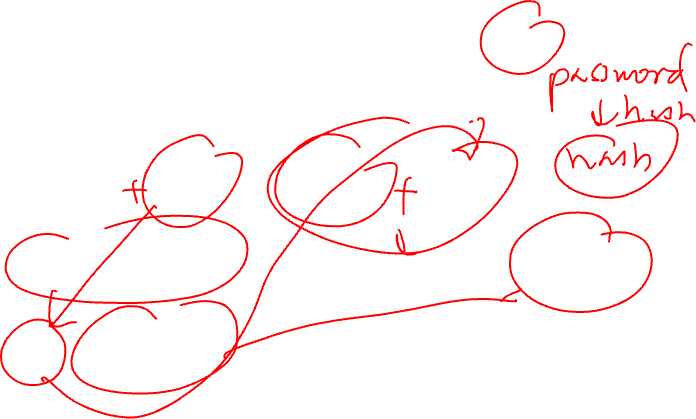 password
↓ hash
hash
+
f